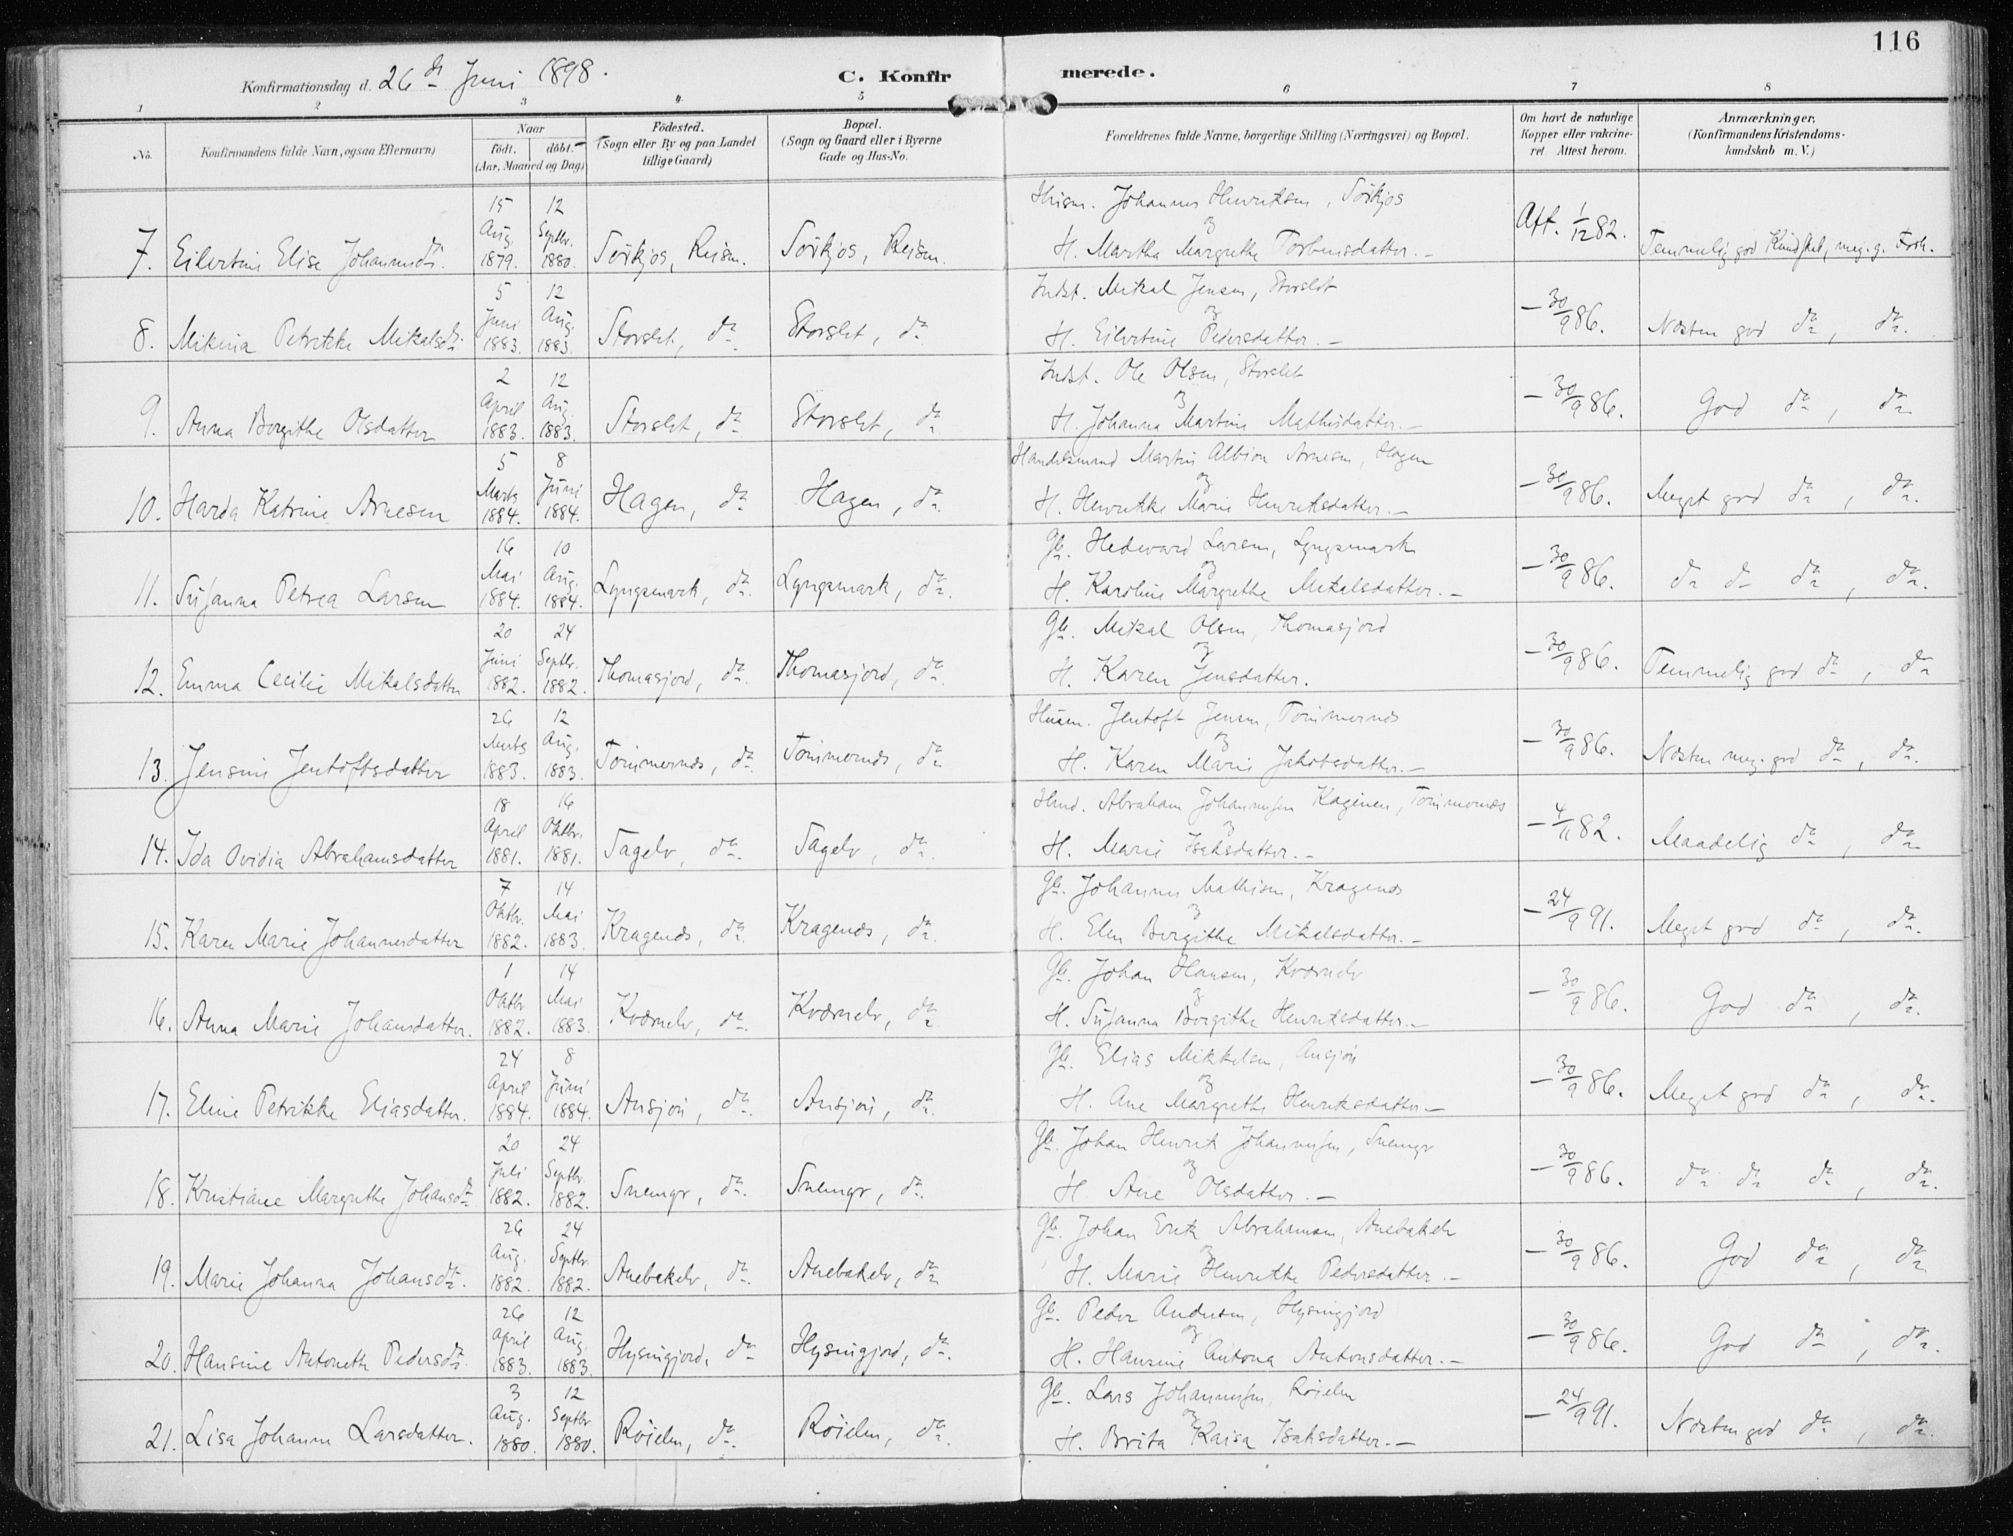 116
Konfirmationsdag d. 26de Juni 1898.
C. Konfirmerede.
1 2 3 4 5 6 7 8
No.
Konfirmandens fulde Navn, ogsaa Efternavn)
Naar
födt. döbt.
(Aar, Maaned og Dag)
Födested.
(Sogn eller By og paa Landet
tillige Gaard)
Bopæl.
(Sogn og Gaard eller i Byerne
Gade og Hus-No.
Forældrenes fulde Navne, borgerlige Stilling (Næringsvei) og Bopæl.
Om havt de naturlige
Kopper eller vakcine-
ret. Attest herom.
Anmærkninger.
(Konfirmandens Kristendoms-
kundskab m. V.)
7. Eilertine Elise Johannesdr. 15 Aug. 1879. 12 Septbr. 1880. Sörkjos, Reisen. Sörkjos, Reisen.
Husm. Johannes Henriksen, Sörkjos
og
H. Martha Margrethe Torbensdatter.—
Att. 1/12 82. Temmelig god Kundskab, meg. g. Forh.
8. Mikina Petrikke Mikalsdr. 5 Juni 1883. 12 Aug. 1883. Storslet, do. Storslet, do
Indst. Mikal Jensen, Storslet
og
H. Eilertine Pedersdatter.—
— 30/9 86. Næsten god do, do.
9. Anna Borgithe Olsdatter 2 April 1883. 12 Aug. 1883. Storslet, do Storslet, do
Indst. Ole Olsen, Storslet
og
H. Johanna Martine Mathisdatter.—
— 30/9 86. God do, do
10. Harda Katrine Arnesen 5 Marts 1884. 8 Juni 1884. Hagen, do Hagen, do.
Handelsmand Martin Albion Arnesen, Hagen
og
H. Henrikke Marie Henriksdatter.—
— 30/9 86. Meget god do, do.
11. Susanna Petrea Larsen 16 Mai 1884. 10 Aug. 1884. Lyngsmark, do. Lyngsmark, do.
Gb. Hedevard Larsen, Lyngsmark
og
H. Karoline Margrethe Mikalsdatter.—
— 30/9 86. do do do, do.
12. Emma Cecilie Mikalsdatter 20 Juni 1882. 24 Septbr. 1882. Thomasjord, do. Thomasjord, do.
Gb. Mikal Olsen, Thomasjord
og
H. Karen Jensdatter.
— 30/9 86. Temmelig god do, do
13. Jensine Jentoftsdatter 26 Marts 1883. 12 Aug. 1883. Tömmernæs, do. Tömmernæs, do
Husm. Jentoft Jensen, Tömmernæs
og
H. Karen Marie Jakobsdatter.—
— 30/9 86. Næsten meg. god do, do.
14. Ida Ovidia Abrahamsdatter 18 April 1881. 16 Oktbr. 1881. Tagelv, do. Tagelv, do.
Hmd. Abraham Johannesen Kaginen, Tömmernæs
og
H. Marie Isaksdatter.—
— 4/11 82. Maadelig do, do
15. Karen Marie Johannesdatter 7 Oktbr. 1882. 14 Mai 1883. Kragenæs, do. Kragenæs, do.
Gb. Johannes Mathisen, Kragenæs
og
H. Elen Bergithe Mikalsdatter.—
— 24/9 91. Meget god do, do.
16. Anna Marie Johansdatter. 1 Oktbr 1882. 14 Mai 1883. Kværnelv, do. Kværnelv, do
Gb. Johan Hansen, Kværnelv
og
H. Susanna Borgithe Henriksdatter.—
— 30/9 86. God do, do.
17. Eline Petrikke Eliasdatter. 24 April 1884. 8 Juni 1884. Ansjön, do. Ansjön, do.
Gb. Elias Mikkelsen, Ansjön
og
H. Ane Margrethe Henriksdatter—
— 30/9 86. Meget god do, do.
18. Kristiane Margrethe Johansdr. 20 Juli 1882. 24 Septbr. 1882. Snemyr, do. Snemyr, do.
Gb. Johan Henrik Johannesen, Snemyr
og
H. Ane Olsdatter.—
— 30/9 86. do do do, do.
19. Marie Johanna Johansdr. 26 Aug. 1882. 24 Septbr. 1882. Anebakelv, do. Anebakelv, do
Gb. Johan Erik Abrahamsen, Anebakelv
og
H. Marie Henrikke Pedersdatter.—
— 30/9 86. God do, do
20. Hansine Antonette Pedersdr. 26 April 1883. 12 Aug. 1883. Hysingjord, do Hysingjord, do.
Gb. Peder Andersen, Hysingjord
og
H. Hansine Antona Antonsdatter.—
— 30/9 86. God do, do.
21. Lisa Johanna Larsdatter. 3 Aug. 1880. 12 Septbr. 1880. Röielen, do. Röielen, do.
Gb. Lars Johannesen, Röielen
og
H. Brita Kaisa Isaksdatter.—
— 24/9 91. Næsten god do, do.